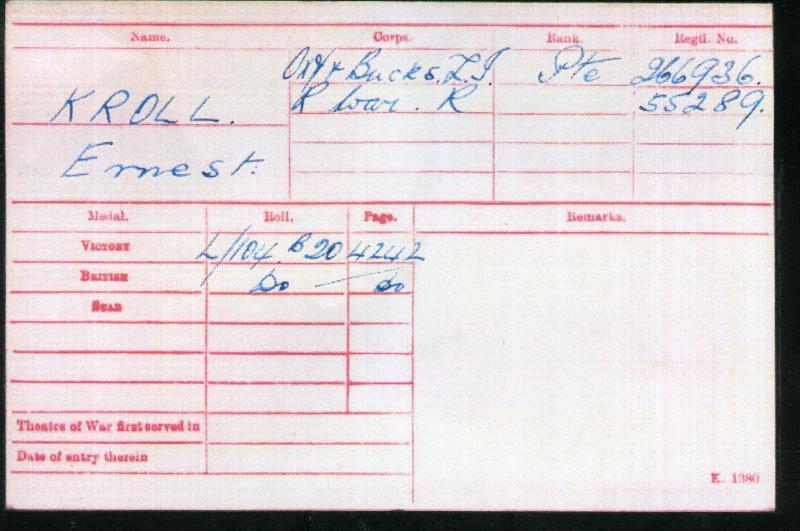 Name. Corps. Rank. Regtl. No.
Oxf & Bucks. L.I. Pte 266936.
KROLL. R War. R 55289.
Ernest.
Medal. Roll. Page. Remarks.
VICTORY L/104 B20 4242
BRITISH Do Do
STAR
Theatre of War first served in
Date of entry therein
K. 1380